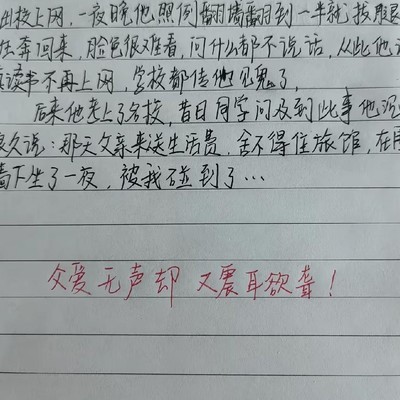 出校上网，一夜晚他照例翻墙翻到一半就拔腿
狂奔回来，脸色很难看，问什么都不说话，从此他
真读书不再上网，学校都传他见鬼了，
后来他考上了名校，昔日同学问及到此事他沉
很久说：那天父亲来送生活费，舍不得住旅馆，在
墙下坐了一夜，被我碰到了…
父爱无声却 又震耳欲聋！